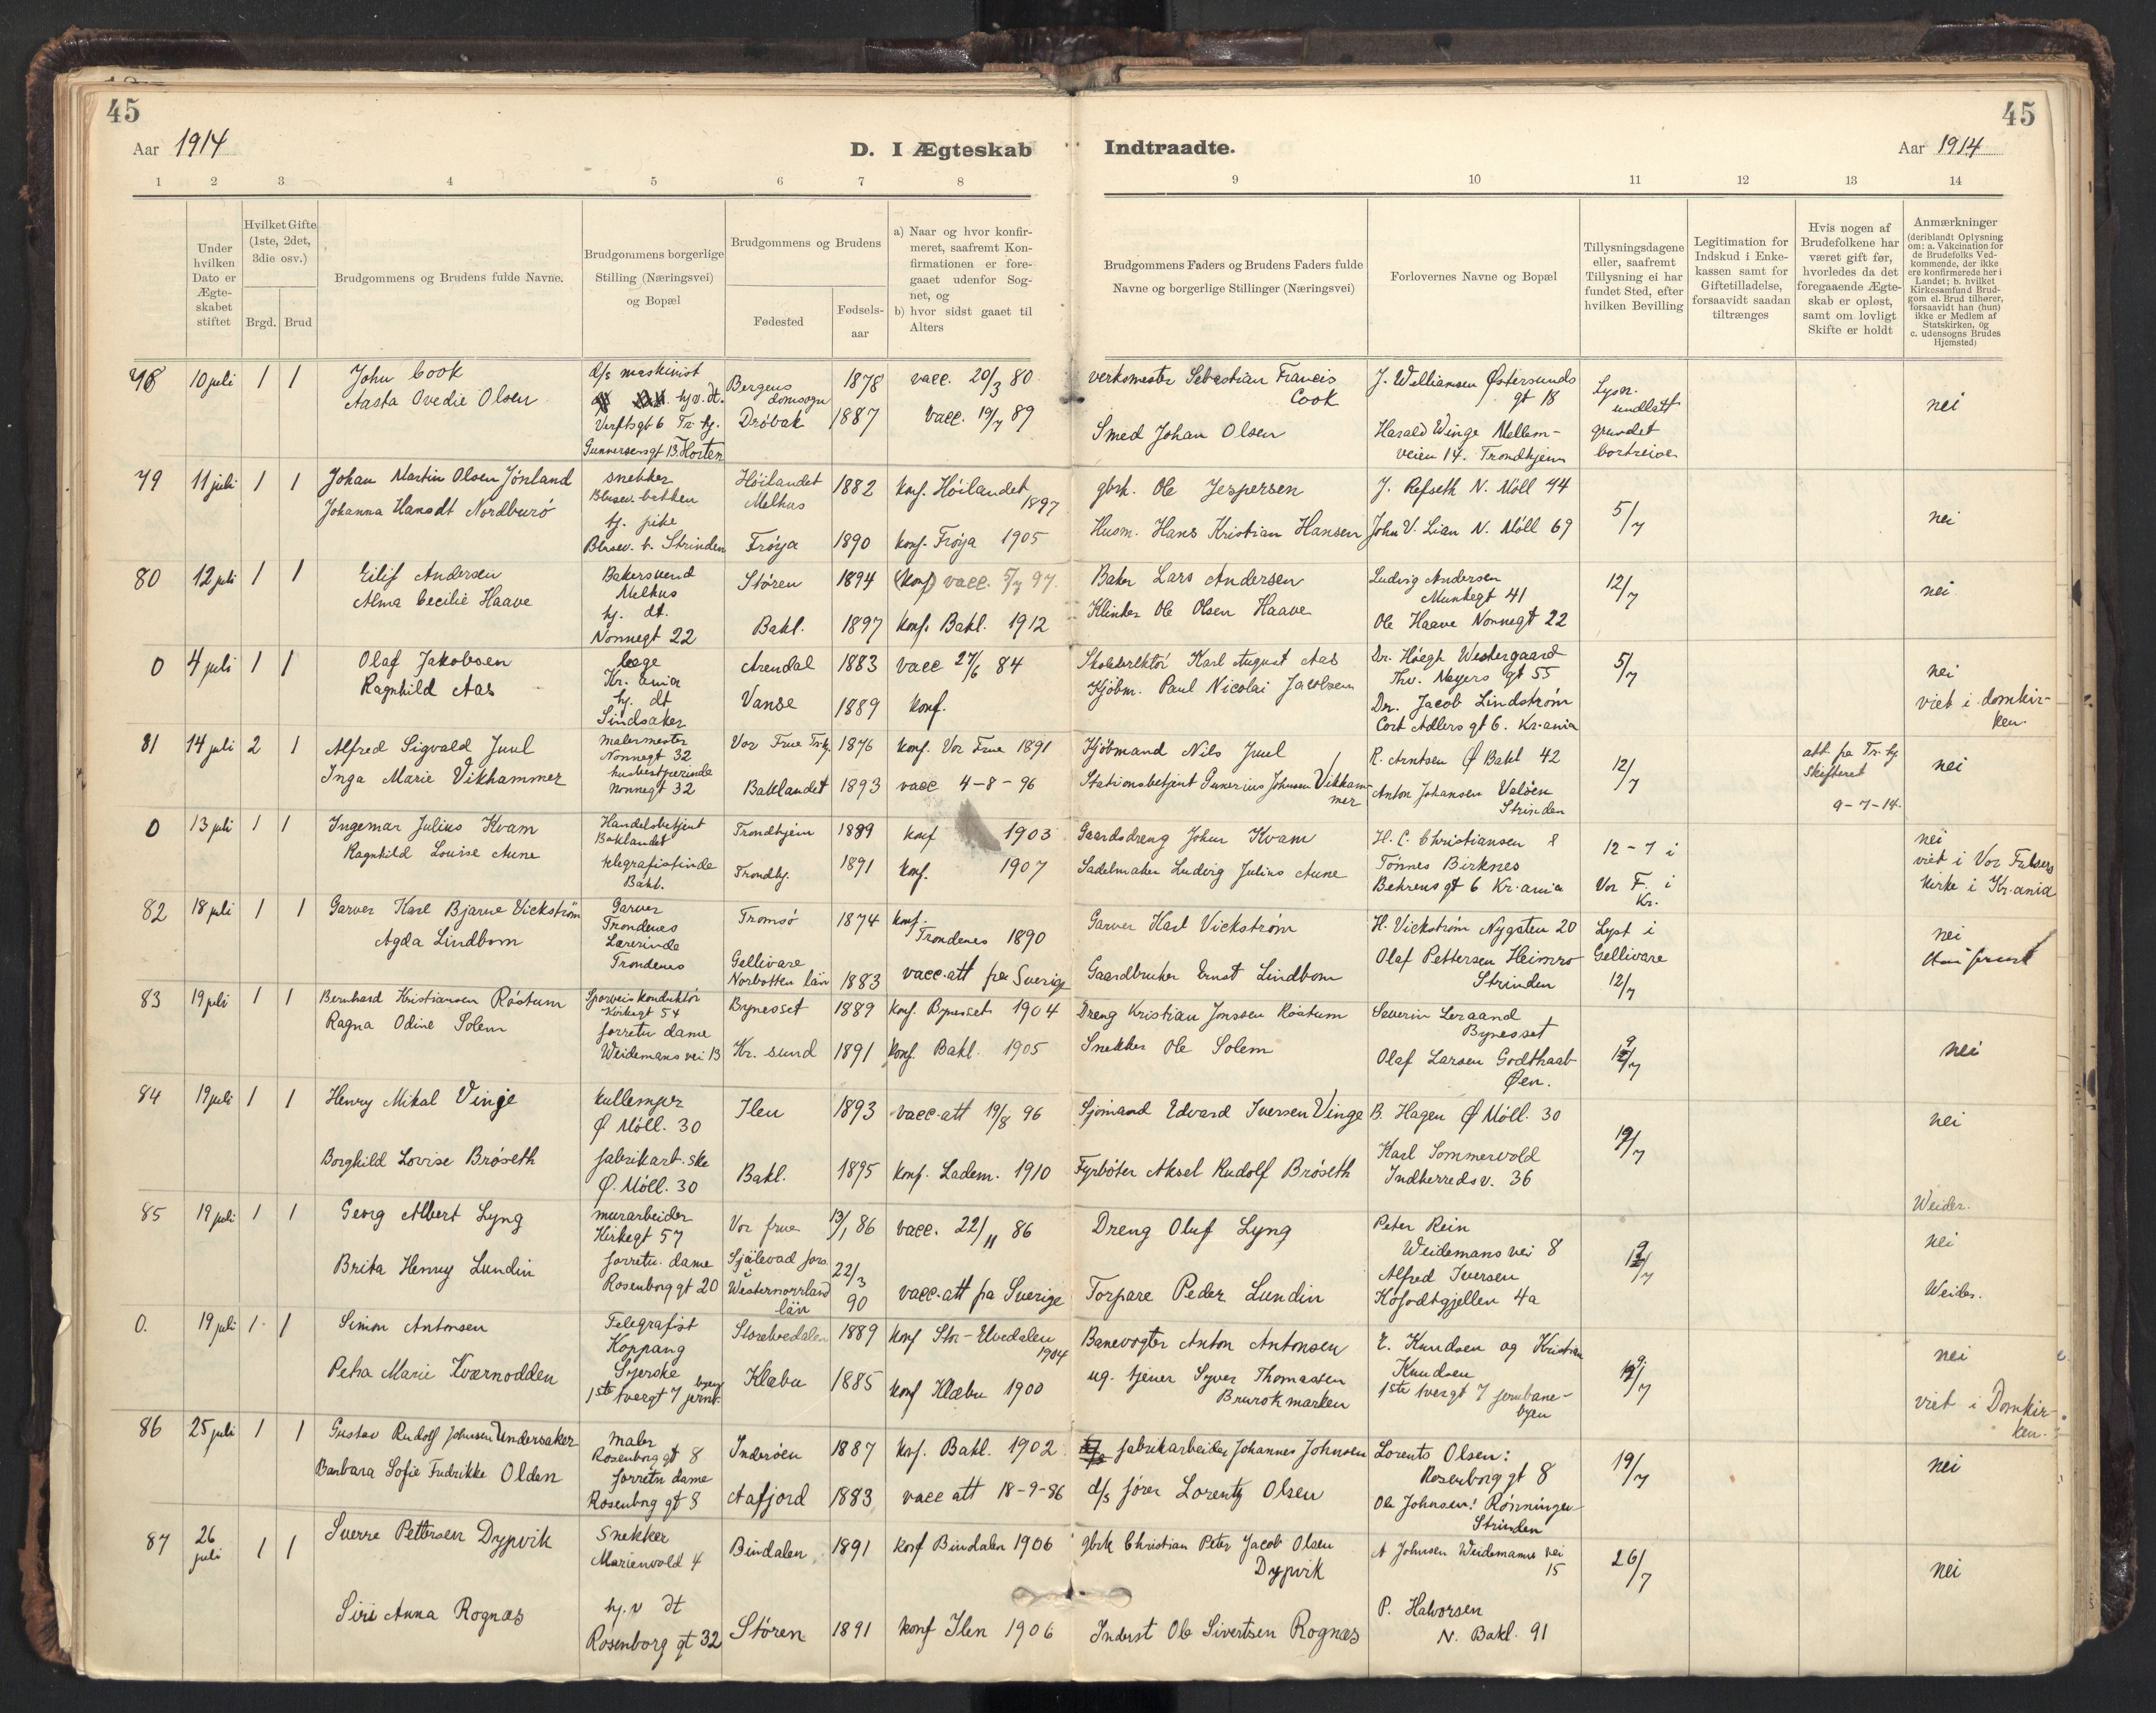 45
45
Aar 1914
D. I Ægteskab
Indtraadte.
Aar 1914
1 2 3 4 5 6 7 8
9 10 11 12 13 14
Under hvilken Dato er Ægteskabet stiftet
Hvilket Gifte (1ste, 2det, 3die osv.)
Brgd. Brud
Brudgommens og Brudens fulde Navne.
Brudgommens borgerlige Stilling (Næringsvei) og Bopæl
Brudgommens og Brudens
Fødested
Fødsels-
aar
a) Naar og hvor konfir-
meret, saafremt Kon-
firmationen er fore-
gaaet udenfor Sog-
net, og
b) hvor sidst gaaet til
Alters
Brudgommens Faders og Brudens Faders fulde
Navne og borgerlige Stillinger (Næringsvei)
Forlovernes Navne og Bopæl
Tillysningsdagene
eller, saafremt
Tillysning ei har
fundet Sted, efter
hvilken Bevilling
Legitimation for
Indskud i Enke-
kassen samt for
Giftetilladelse,
forsaavidt saadan
tiltrænges
Hvis nogen af
Brudefolkene har
været gift før,
hvorledes da det
foregaaende Ægte-
skab er opløst,
samt om lovligt
Skifte er holdt
Anmærkninger
(deriblandt Oplysning
om: a. Vakcination for
de Brudefolks Ved-
kommende, der ikke
ere konfirmerede her i
Landet; b. hvilket
Kirkesamfund Brud-
gom el. Brud tilhører,
forsaavidt han (hun)
ikke er Medlem af
Statskirken, og
c. udensogns Brudes
Hjemsted)
78 10 juli 1 1 John Cook d/s maskinist Bergens domsogn 1878 vacc. 20/3 80 verksmester Sebastian Francis Cook J. Williamsen Østersunds gt 18
Aasta Ovedie Olsen hj.v. dt. Verftsgt 6 Tr.hj. Gunnersensgt 13. Horten Drøbak 1887 Vacc. 19/7 89 Smed Johan Olsen Harald Winge Mellem-
veien 14. Trondhjem Lysn. undlatt grundet bortreise nei
79 11 juli 1 1 Johan Martin Olsen Jønland snekker Høilandet 1882 konf. Høilandet 1897 gbrk. Ole Jespersen J. Refseth N. Møll 44 5/7 nei
Johanna Hansdt Nordburø hj. pike Strinden Frøya 1890 konf. Frøya 1905 Husm. Hans Kristian Hansen John V. Lian N. Møll 69
80 12 juli 1 1 Eilif Andersen Bakersvend Melhus Støren 1894 (konf) vacc. 5/7 97. Baker Lars Andersen Ludvig Andersen Munkegt 41 12/7 nei
Alma Cecilie Haave hj. dt. Nonnegt 22 Bakl. 1897 konf. Bakl. 1912 Ole Olsen Haave Ole Haave Nonnegt 22
0 4 juli 1 1 Olaf Jakobsen læge Kr.ania Arendal 1883 vacc 27/6 84 Karl August Aas Dr. Høegh Westergaard Thv. Meyers gt 55 5/7 nei
Ragnhild Aas hj. dt Sindsaker Vanse 1889 konf. Kjøbm. Paul Nicolai Jacobsen Dr. Jacob Lindstrøm Cort Adlers gt 6. Kr.ania viet i domkir-
ken.
81 14 juli 2 1 Alfred Sigvald Juul malermester Nonnegt 32 Vor Frue Tr.hj. 1876 konf. Vor Frue 1891 Kjøbmand Nils Juul R. Arntsen Ø Bakl 42 12/7 att. fra Tr.hj. skifteret 9-7-14. nei
Inga Marie Vikhammer husbestyrerinde Nonnegt 32 Baklandet 1893 vacc 4-8-96 Stationsbetjent Gunerius Johnsen Vikham-
mer Anton Johansen Valøen Strinden
0 13 juli 1 1 Ingemar Julius Kvam Handelsbetjent Baklandet Trondhjem 1889 konf 1903 Gaardsdreng Johan Kvam H. C. Christiansen & 12-7 i nei
Ragnhild Louise Aune telegrafistinde Bakl. Trondhj. 1891 konf. 1907 Sadelmaker Ludvig Julius Aune Tønnes Birknes Behrens gt 6 Kr.ania Vor F. i Kr. viet i Vor Frelsers kirke i Kr.ania
82 18 juli 1 1 Garver Karl Bjarne Vickstrøm Garver Trondenes Tromsø 1874 konf. Trondenes 1890 Garver Karl Vickstrøm H. Vickstrøm Nygaten 20 Lyst i Gellivare 12/7 nei
Agda Lindbom Lærerinde Trondenes Gellivare Norbotten län 1883 vacc-att fra Sverige Gaardbruker Ernst Lindbom Olaf Pettersen Heimro Strinden
83 19 juli 1 1 Bernhard Kristiansen Røstum Sporveiskonduktør Kirkegt 54 Bynesset 1889 konf. Bynesset 1904 Dreng Kristian Jonssen Røstum Severin Leraand Bynesset nei
Ragna Odine Solem forretn dame Weidemans vei 13 Kr. sund 1891 konf. Bakl. 1905 Snekker Ole Solem Olaf Larsen Godthaab Øen.
84 19 juli 1 1 Henry Mikal Vinge kullemper Ø Møll. 30 Ilen 1893 vacc-att 19/8 96 Sjømand Edvard Iversen Vinge B. Hagen Ø Møll. 30 nei
Borghild Lovise Brøseth fabrikarb.ske Ø. Møll. 30 Bakl. 1895 konf. Ladem. 1910 Fyrbøter Aksel Rudolf Brøseth Karl Sommervold Indherredsv. 36
85 19 juli 1 1 Georg Albert Lyng murarbeider Kirkegt 57 Vor frue 13/1 86 vacc. 22/11 86 Dreng Oluf Lyng Peter Rein Weidemans vei 8 Weider. nei
Brita Henny Lundin forretn. dame Rosenborg gt 20 Själevad Westernorrland län 22/3 90 vacc-att fra Sverige Torpare Peder Lundin Alfred Iversen 4a Weider.
0. 19 juli 1 1 Simon Antonsen Telegrafist Koppang 1889 konf Stor-Elvedalen 1904 Banevogter Anton Antonsen E. Knudsen og Kristian Knudsen nei
Petra Marie Kværnodden Syerske 1ste tvergt 7 jernb. byen Klæbu 1885 konf Klæbu 1900 ug. tjener Syver Thomassen 1ste tvergt 7 jernbane-
byen viet i Domkir-
ken.
86 25 juli 1 1 Gustav Rudolf Johnsen Undersaker maler Rosenborg gt 8 Inderøen 1887 konf. Bakl. 1902 fabrikarbeider Johannes Johnsen Lorents Olsen: Rosenborg gt 8 19/7 nei
Barbara Sofie Fredrikke Olden forretn dame Rosenborg gt 8 Aafjord 1883 vacc att 18-9-86 d/s fører Lorentz Olsen Ole Johnsen: Rønningen Strinden
87 26 juli 1 1 Sverre Pettersen Dypvik Snekker Marienvold 4 Bindalen 1891 konf Bindalen 1906 gbrk Christian Peter Jacob Olsen Dypvik A Johnsen Weidemanns vei 15 26/7 nei
Siri Anna Rognæs hj.v dt Rosenborg gt 32 Støren 1891 konf Ilen 1906 Inderst Ole Sivertsen Rognæs P. Halvorsen N. Bakl. 91